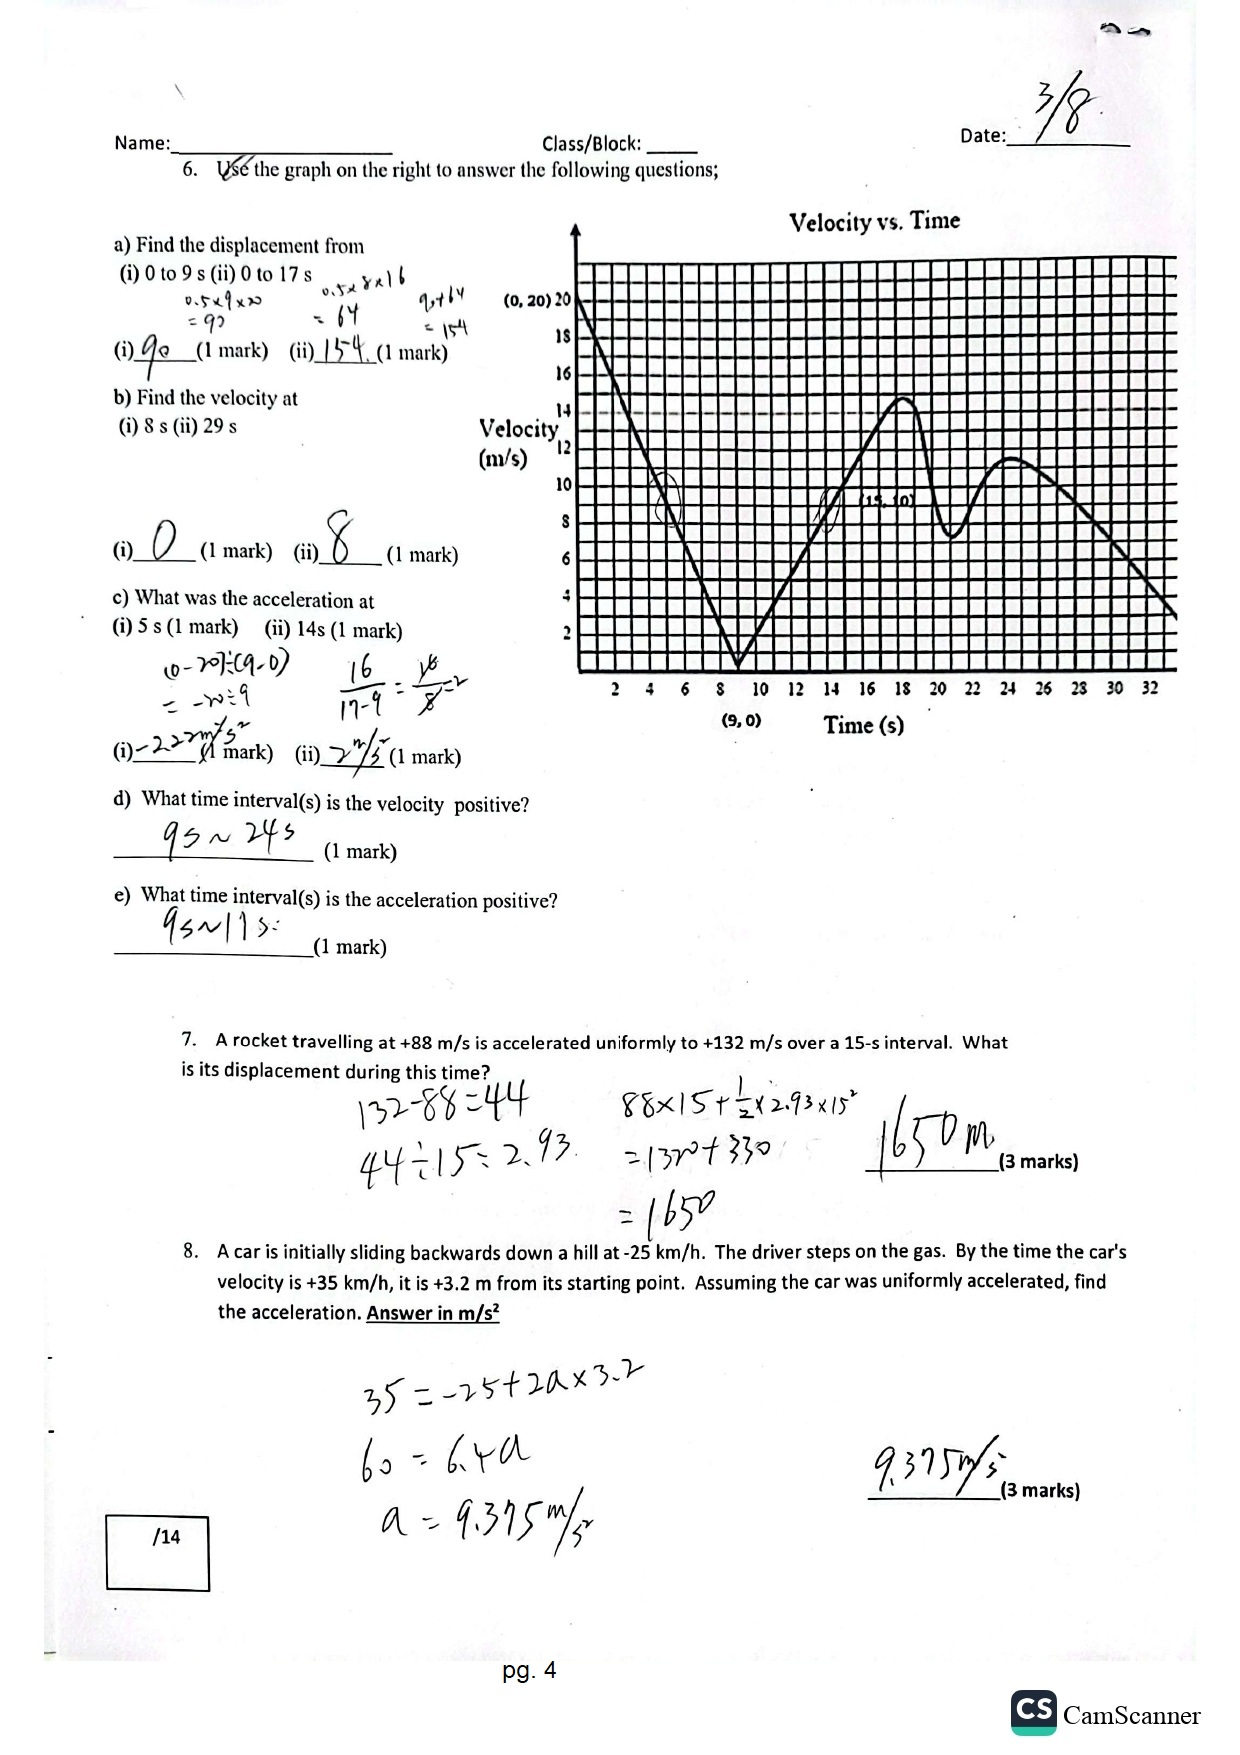 3/8.
Name:____ Class/Block: ____ Date:____
6. Use the graph on the right to answer the following questions;
Velocity vs. Time
a) Find the displacement from
(i) 0 to 9 s (ii) 0 to 17 s
0.5×9×20
= 90
0.5×8×16
= 64
90+64
= 154
(i) 90 (1 mark) (ii) 154. (1 mark)
b) Find the velocity at
(i) 8 s (ii) 29 s
(i) 0 (1 mark) (ii) 8 (1 mark)
c) What was the acceleration at
(i) 5 s (1 mark) (ii) 14s (1 mark)
(0-20)÷(9-0)
= -20÷9
16
17-9
= 16
8
=2
(i) -2.22 m/s² (1 mark) (ii) 2 m/s² (1 mark)
d) What time interval(s) is the velocity positive?
9s ~ 24s
(1 mark)
e) What time interval(s) is the acceleration positive?
(1 mark)
(0, 20) 20
18
16
14
12
10
8
6
4
2
Velocity
(m/s)
(15, 10)
2 4 6 8 10 12 14 16 18 20 22 24 26 28 30 32
(9, 0)
Time (s)
7. A rocket travelling at +88 m/s is accelerated uniformly to +132 m/s over a 15-s interval. What
is its displacement during this time?
132-88=44
44÷15= 2.93.
88×15+½×2.93×15²
=1320+330
=1650
1650 m
(3 marks)
8. A car is initially sliding backwards down a hill at -25 km/h. The driver steps on the gas. By the time the car's
velocity is +35 km/h, it is +3.2 m from its starting point. Assuming the car was uniformly accelerated, find
the acceleration. Answer in m/s²
35 = -25+2a×3.2
60 = 6.4a
a = 9.375 m/s²
9.375 m/s²
(3 marks)
/14
pg. 4
CS CamScanner